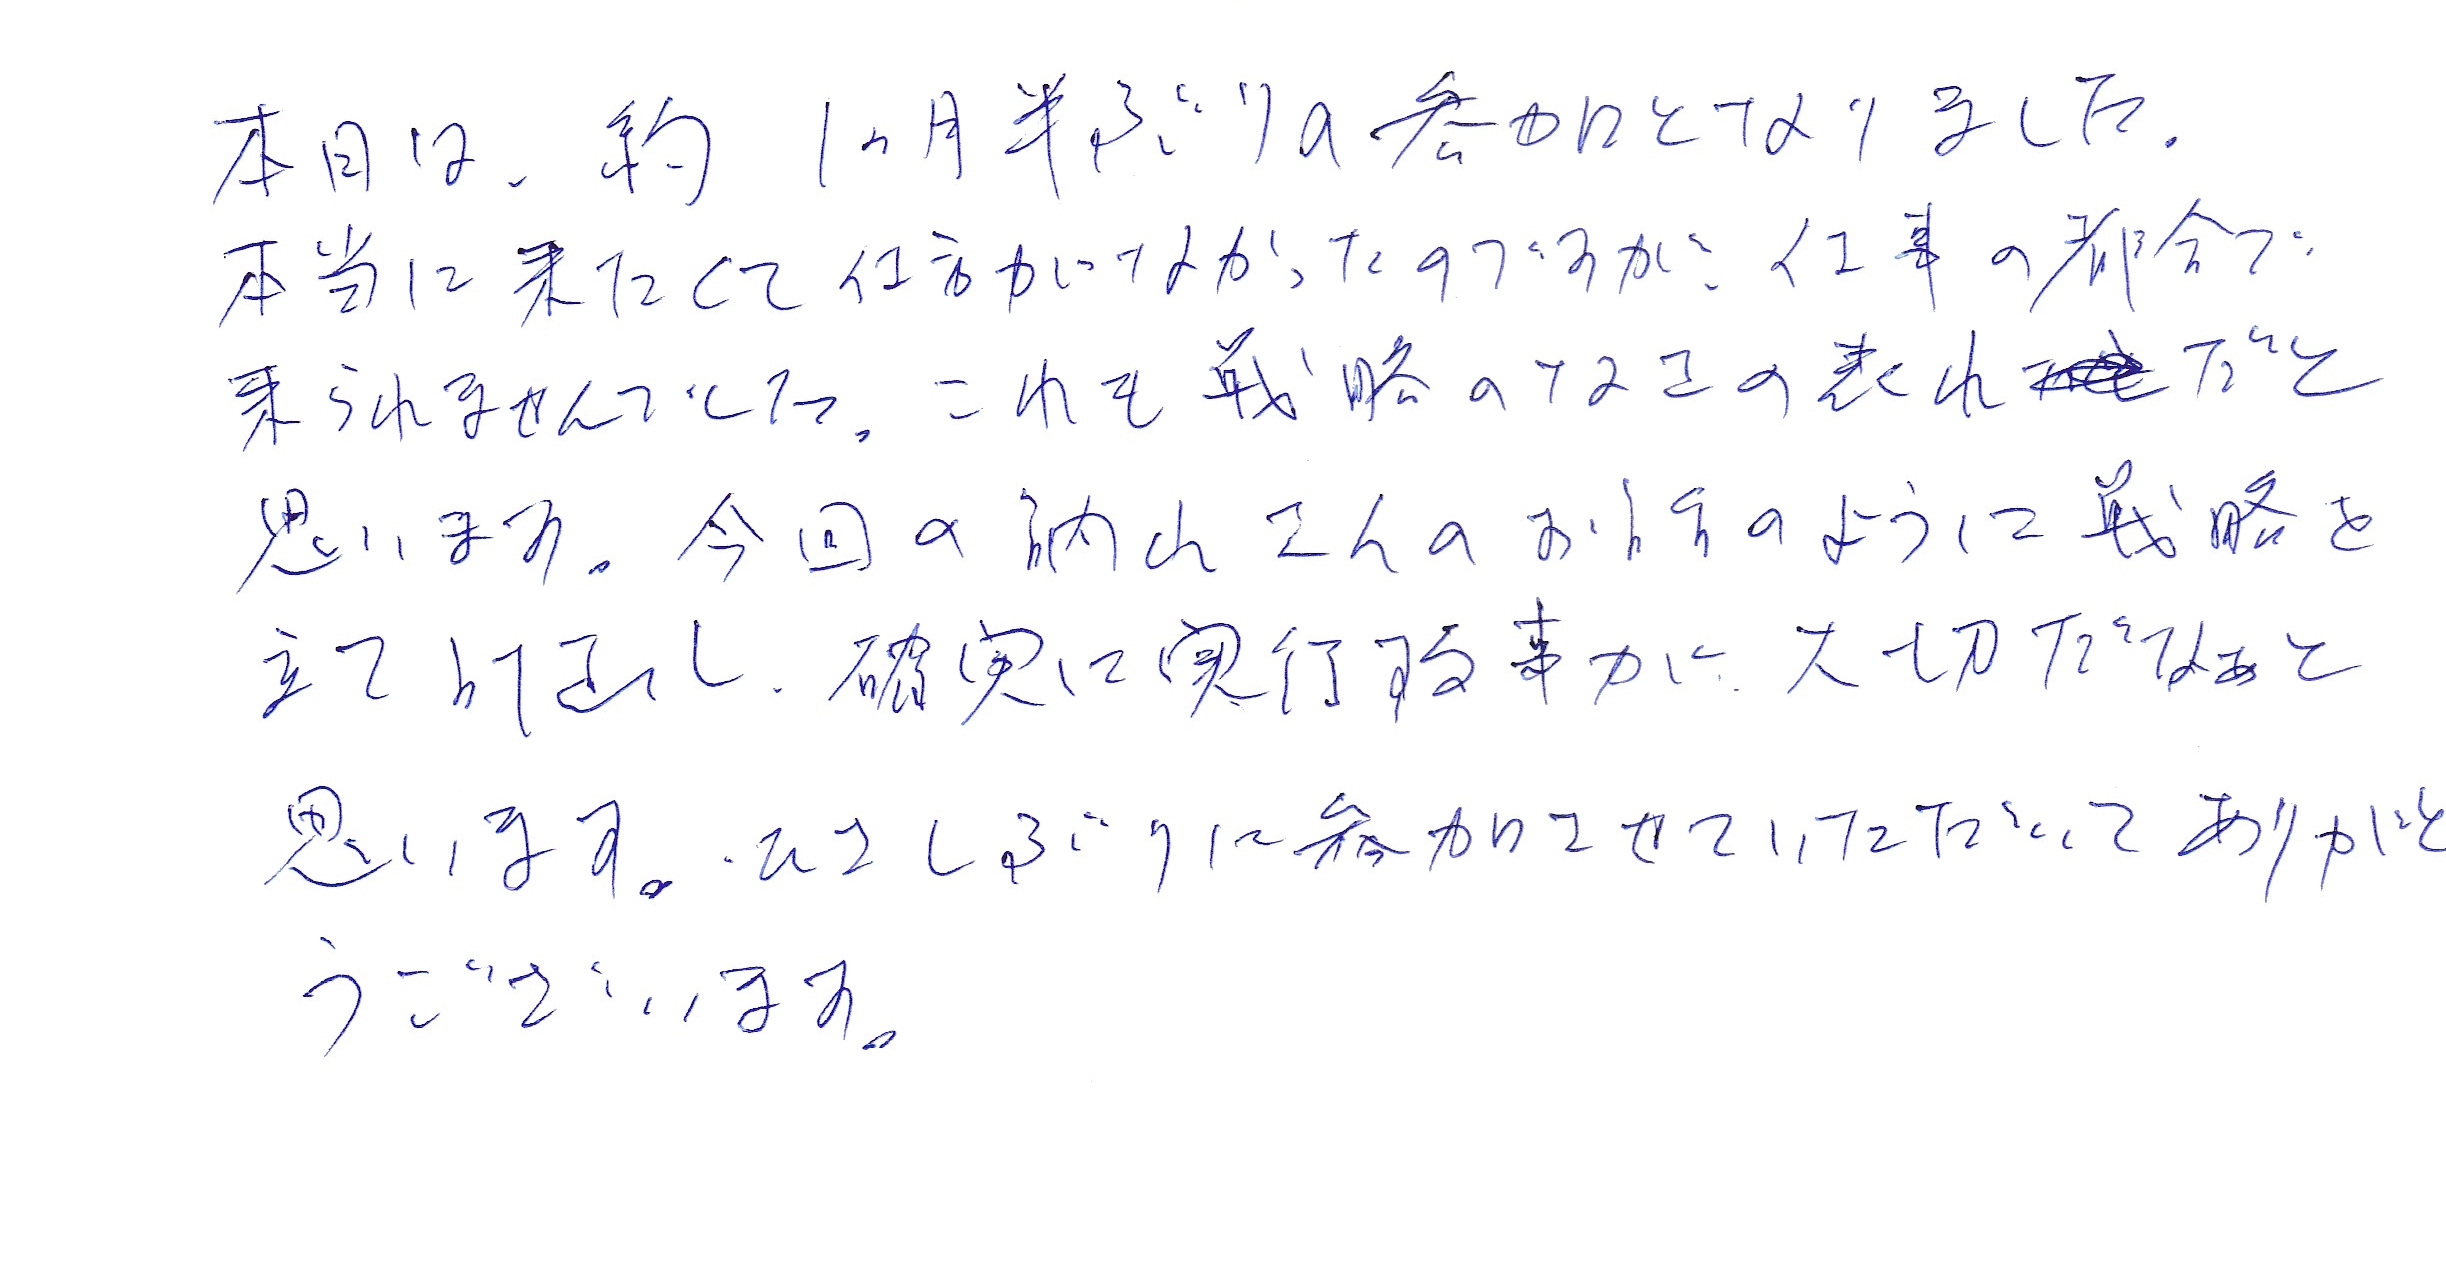 本日は、約1ヶ月半ぶりの参加となりました。
本当に来たくて仕方がなかったのですが、仕事の都合で
来られませんでした。これも戦略のなさの表れだと
思います。今回の納山さんのお話のように戦略を
立て計画し、確実に実行する事が、大切だなぁと
思います。ひさしぶりに参加させていただいてありがと
うございます。